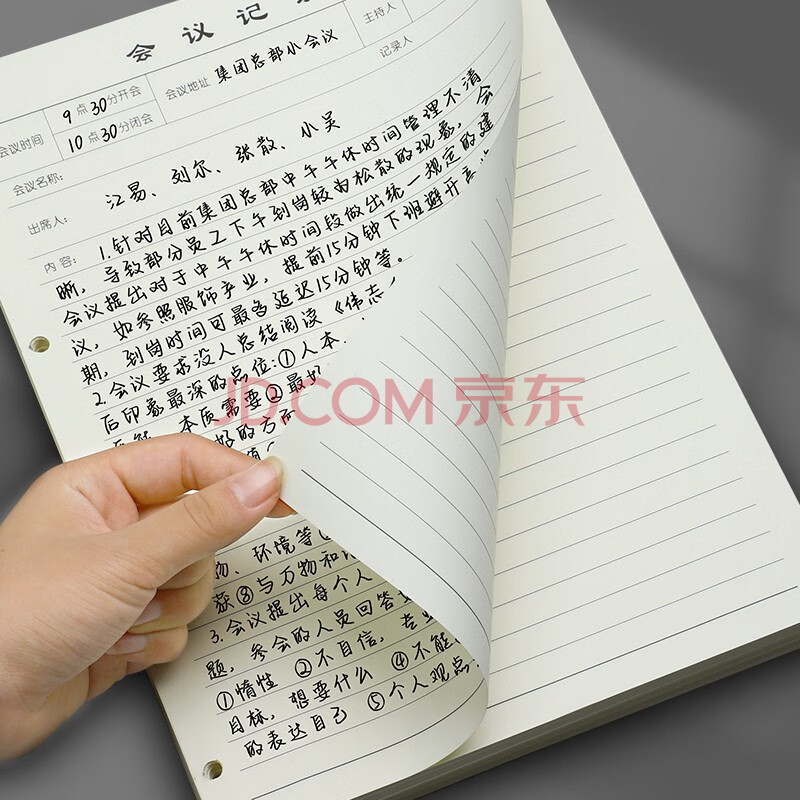 会议记
会议时间 9点30分开会 会议地址 集团总部小会议 主持人
10点30分闭会 记录人
会议名称:
出席人: 江易、刘尔、张散、小吴
内容: 1.针对目前集团总部中午午休时间管理不清
晰,导致部分员工下午到岗较为松散的现象,会
会议提出对于中午午休时间段做出统一规定的建
议,如参照服饰产业,提前15分钟下班避开高
期,到岗时间可最多延迟15分钟等。
2.会议要求没人总结阅读《伟志
后印象最深的点位:①人本
本质需要②最好
好的方
值
JD.COM 京东
物、环境等
获⑧与万物和
3.会议提出每个人
题,参会的人员回答
①惰性 ②不自信,专业 ④不能
目标,想要什么 ⑤个人观点
的表达自己